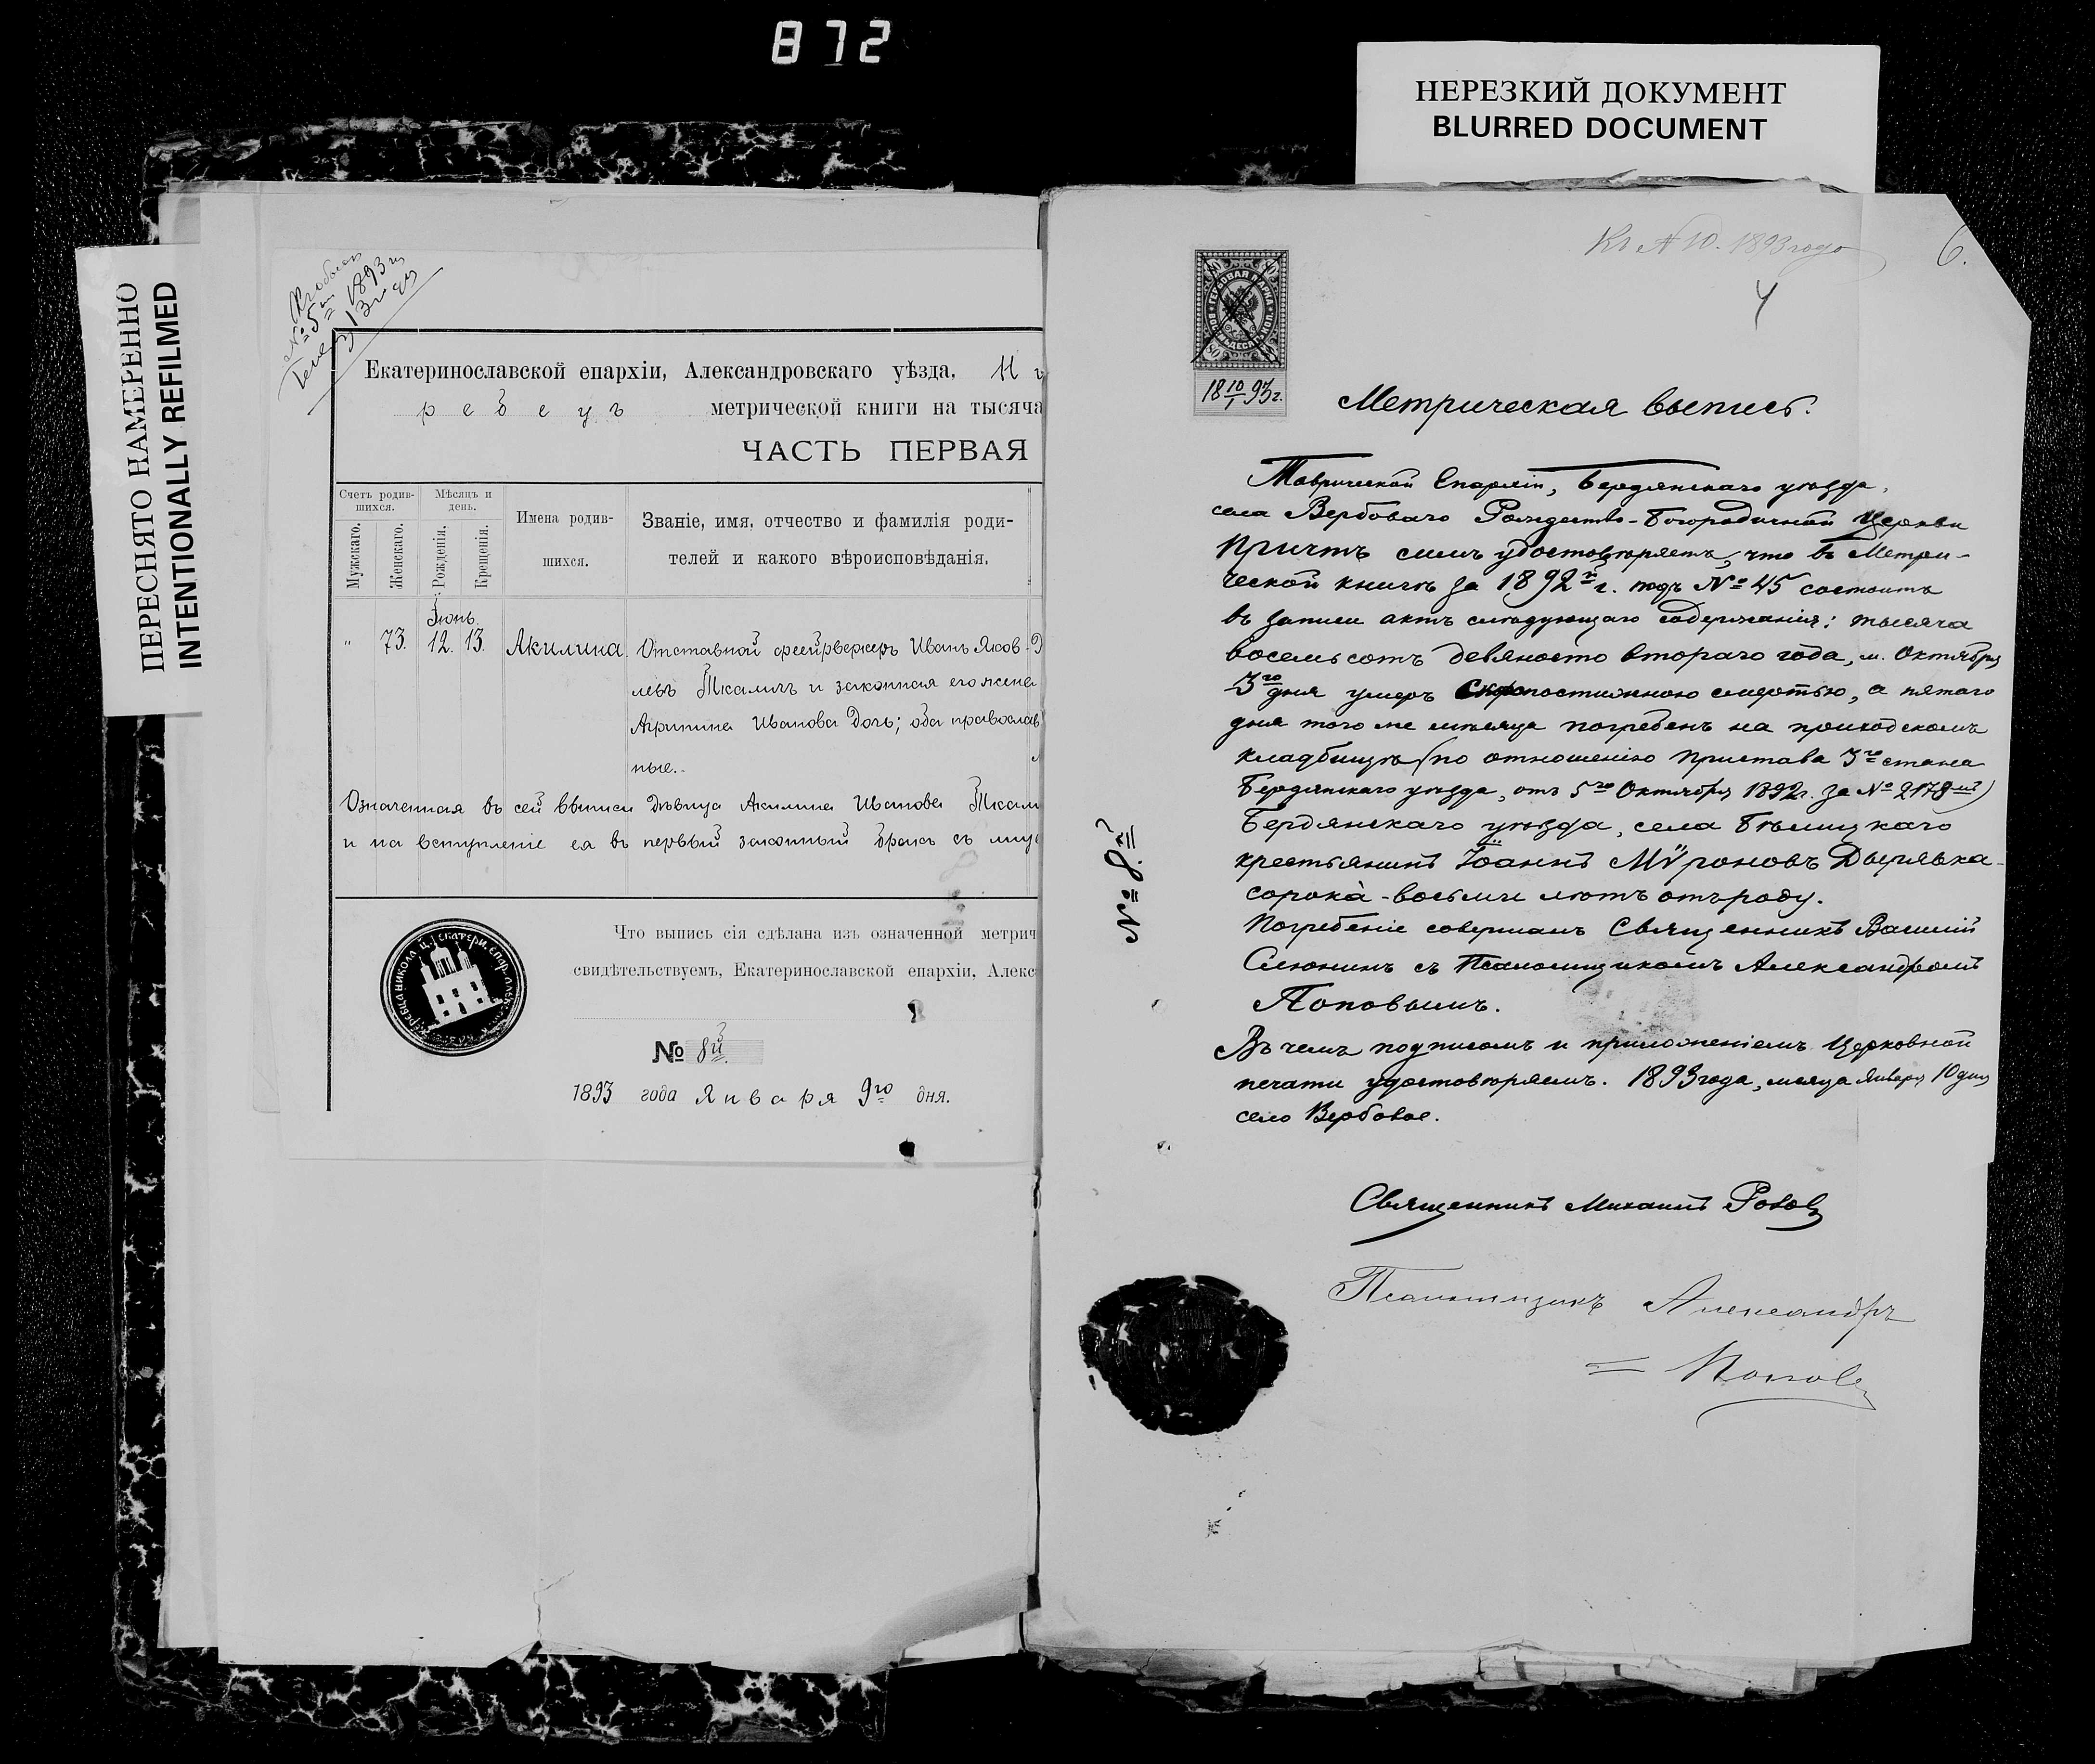 872
НЕРЕЗКИЙ ДОКУМЕНТ
BLURRED DOCUMENT
ПЕРЕСНЯТО НАМЕРЕННО
INTENTIONALLY REFILMED
№ 5 1893
Екатеринославской епархіи, Александровскаго уѣзда,
ребецъ метрической книги на тысяча
ЧАСТЬ ПЕРВАЯ
Счетъ родив-
шихся.
Мужскаго.
Женскаго.
Мѣсяцъ и
день.
Рожденія.
Крещенія.
Имена родив-
шихся.
Званіе, имя, отчество и фамилія роди-
телей и какого вѣроисповѣданія.
Іюнь.
" 73. 12. 13. Акилина. Отставной фейрверкеръ Иванъ Яков-
левъ Ткаличъ и законная его жена
Агрипина Иванова дочь; оба православ
ные.-
Означенная въ сей выписи дѣвица Акилина Иванова Ткали
и на вступленіе ея въ первый законный бракъ съ
Что выпись сія сдѣлана изъ означенной метрич
свидѣтельствуемъ, Екатеринославской епархіи, Алекс
№ 8й.
1893 года Января 9го дня.
Кл № 10. 1893 года
6.
4
ГЕРБОВАЯ МАРКА
80 80
18 10/I 93 г.
Метрическая выпись.
Таврической Епархіи, Бердянскаго уѣзда,
села Вербоваго Рождество-Богородичной Церкви
Причтъ симъ удостовѣряетъ, что въ Метри-
ческой книгѣ за 1892й г. подъ № 45 состоитъ
въ записи актъ слѣдующаго содержанія: тысяча
восемьсотъ девяносто втораго года, м. Октября
3го дня умеръ скоропостижною смертью, а пятаго
дня того же мѣсяца погребенъ на приходскомъ
кладбищѣ (по отношенію Пристава 3го стана
Бердянскаго уѣзда, отъ 5го Октября 1892г. за № 2178мъ)
Бердянскаго уѣзда, села Бѣлицкаго
крестьянинъ Іоаннъ Мѵроновъ Дырявка-
сорока-восьми лѣтъ отъ роду.
Погребеніе совершалъ Священникъ Василій
Слюнинъ съ Псаломщикомъ Александромъ
Поповымъ.
Въ чемъ подписомъ и приложеніемъ Церковной
печати удостовѣряемъ. 1893 года, мѣсяца Января 10 дня
село Вербовое.
№ 8й
Священникъ Михаилъ
Псаломщикъ Александръ
Поповъ